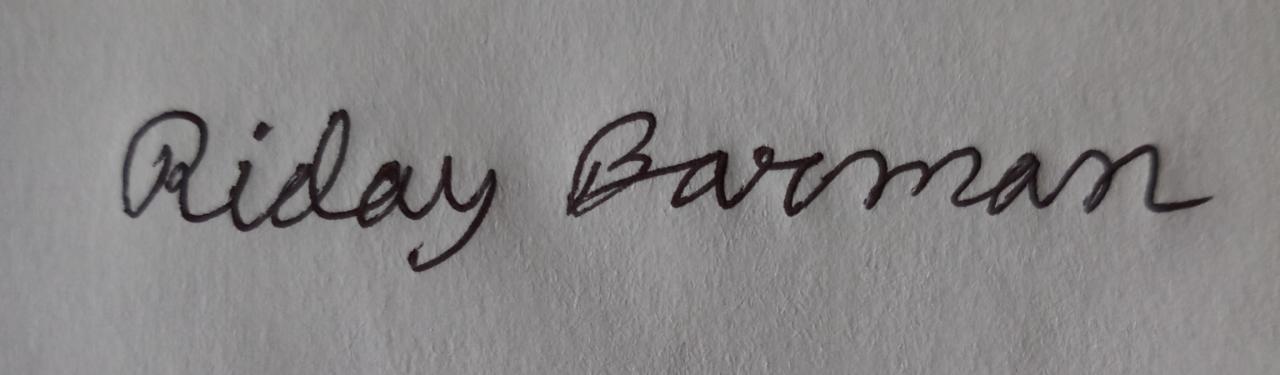 Riday Barman